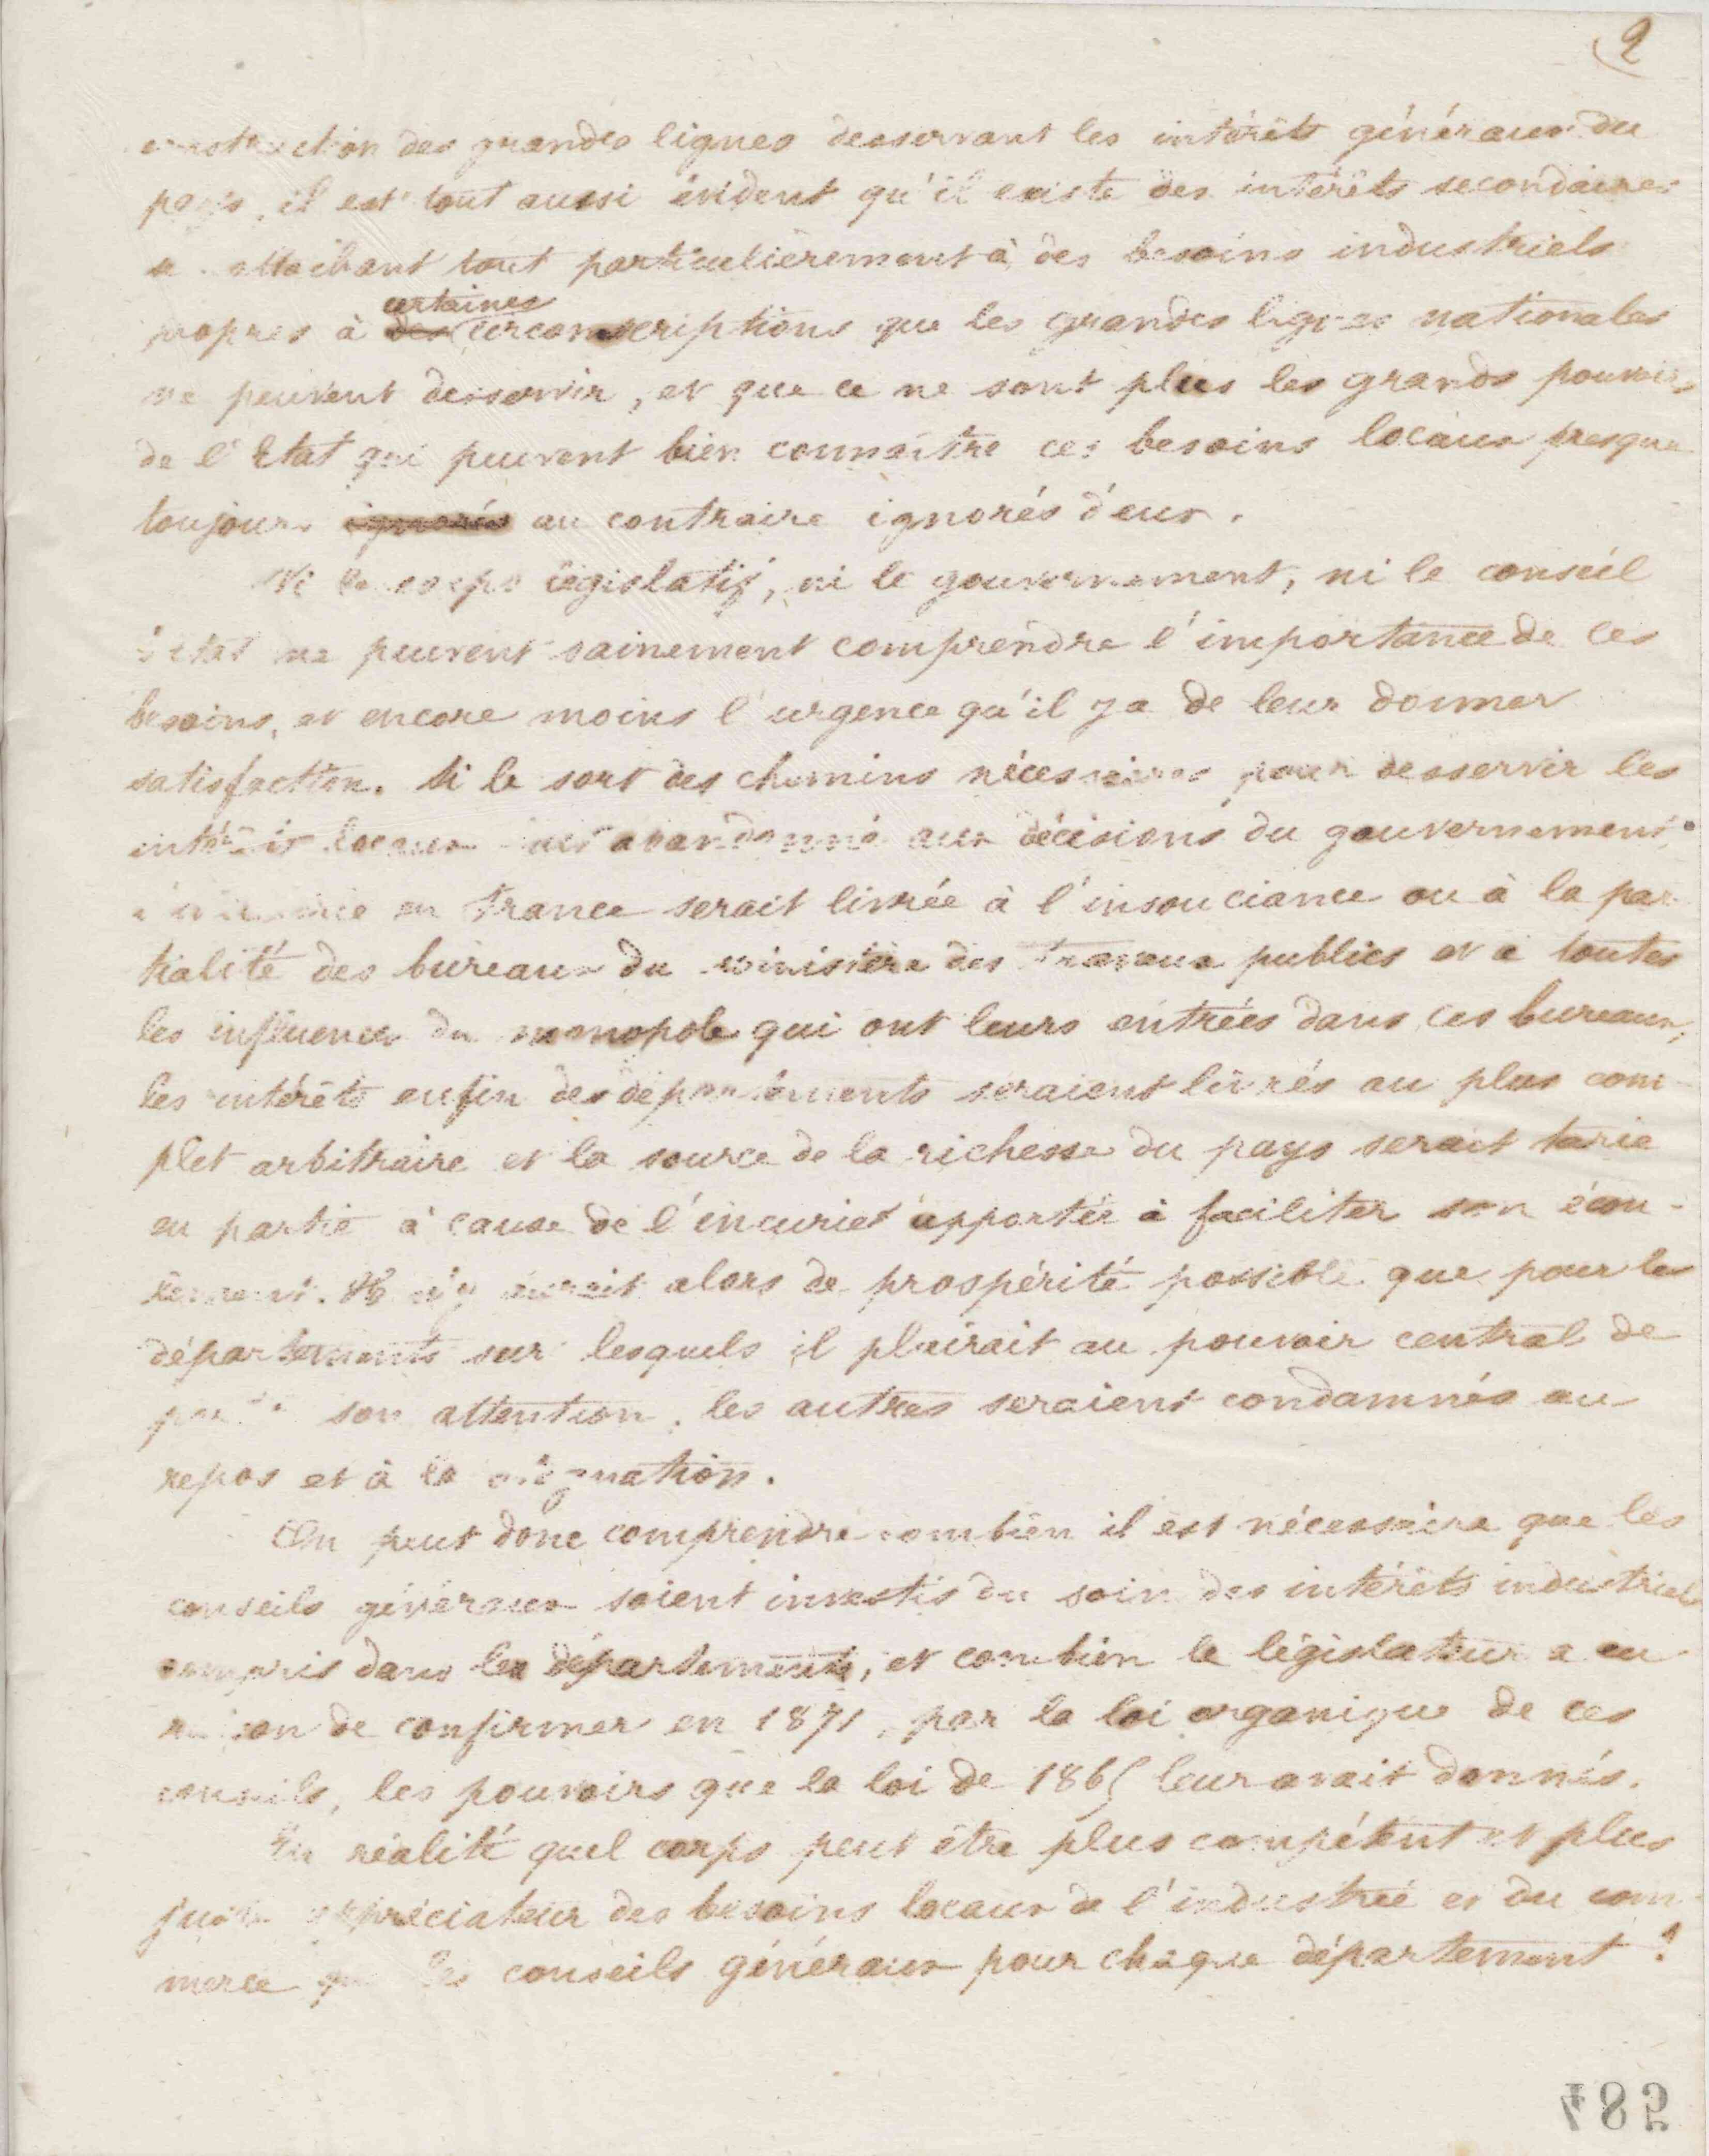 2
construction des grandes lignes desservant les intérêts généraux du
pays, il est tout aussi évident qu'il existe des intérêts secondaires
se rattachant tout particulièrement à des besoins industriels
certaines
propres à des circonscriptions que les grandes lignes nationales
ne peuvent desservir, et que ce ne sont plus les grands pouvoirs
de l'Etat qui peuvent bien connaître ces besoins locaux presque
toujours ignorés au contraire ignorés d'eux.
Ni le corps législatif, ni le gouvernement, ni le conseil
d'état ne peuvent sainement comprendre l'importance de ces
besoins, et encore moins l'urgence qu'il y a de leur donner
satisfaction. Si le sort des chemins nécessaires pour desservir les
intérêts locaux abandonné aux décisions du gouvernement
l'industrie en France serait livrée à l'insouciance ou à la par-
tialité des bureaux du ministère des travaux publics et à toutes
les influences du monopole qui ont leurs entrées dans ces bureaux,
les intérêts enfin des départements seraient livrés au plus com-
plet arbitraire et la source de la richesse du pays serait tarie
en partie à cause de l'incurie apportée à faciliter son écou-
lement. Il n'y aurait alors de prospérité possible que pour les
départements sur lesquels il plairait au pouvoir central de
porter son attention, les autres seraient condamnés au
repos et à la résignation.
On peut donc comprendre combien il est nécessaire que les
conseils généraux soient investis du soin des intérêts industriels
compris dans les départements, et combien le législateur a eu
raison de confirmer en 1871, par la loi organique de ces
conseils, les pouvoirs que la loi de 1865 leur avait donnés.
En réalité quel corps peut être plus compétent et plus
juste appréciateur des besoins locaux de l'industrie et du com-
merce que les conseils généraux pour chaque département ?
584